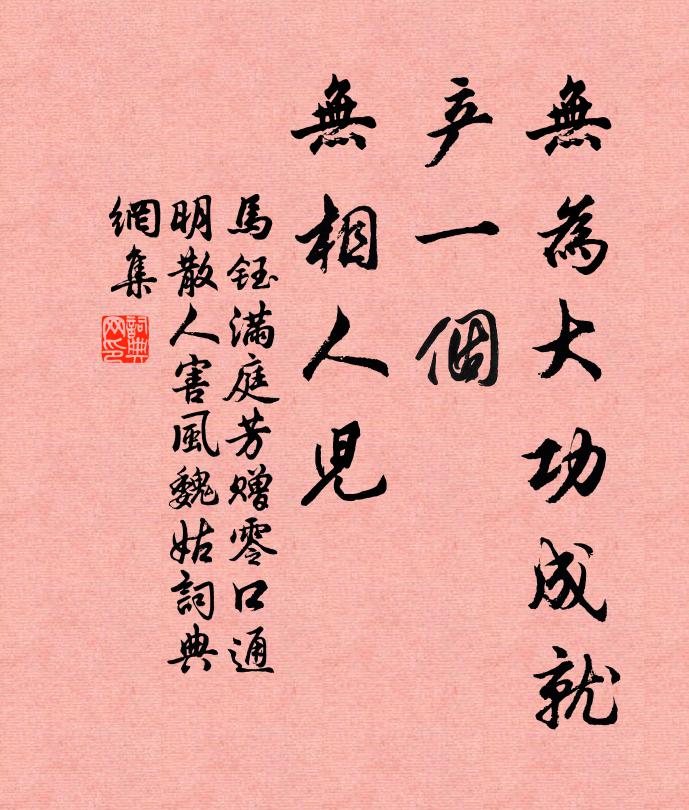 無為大功成就
产一個
無相人児
馬鈺满庭芳赠零口通
明散人害風魏姑詞典
網集
詞典網印